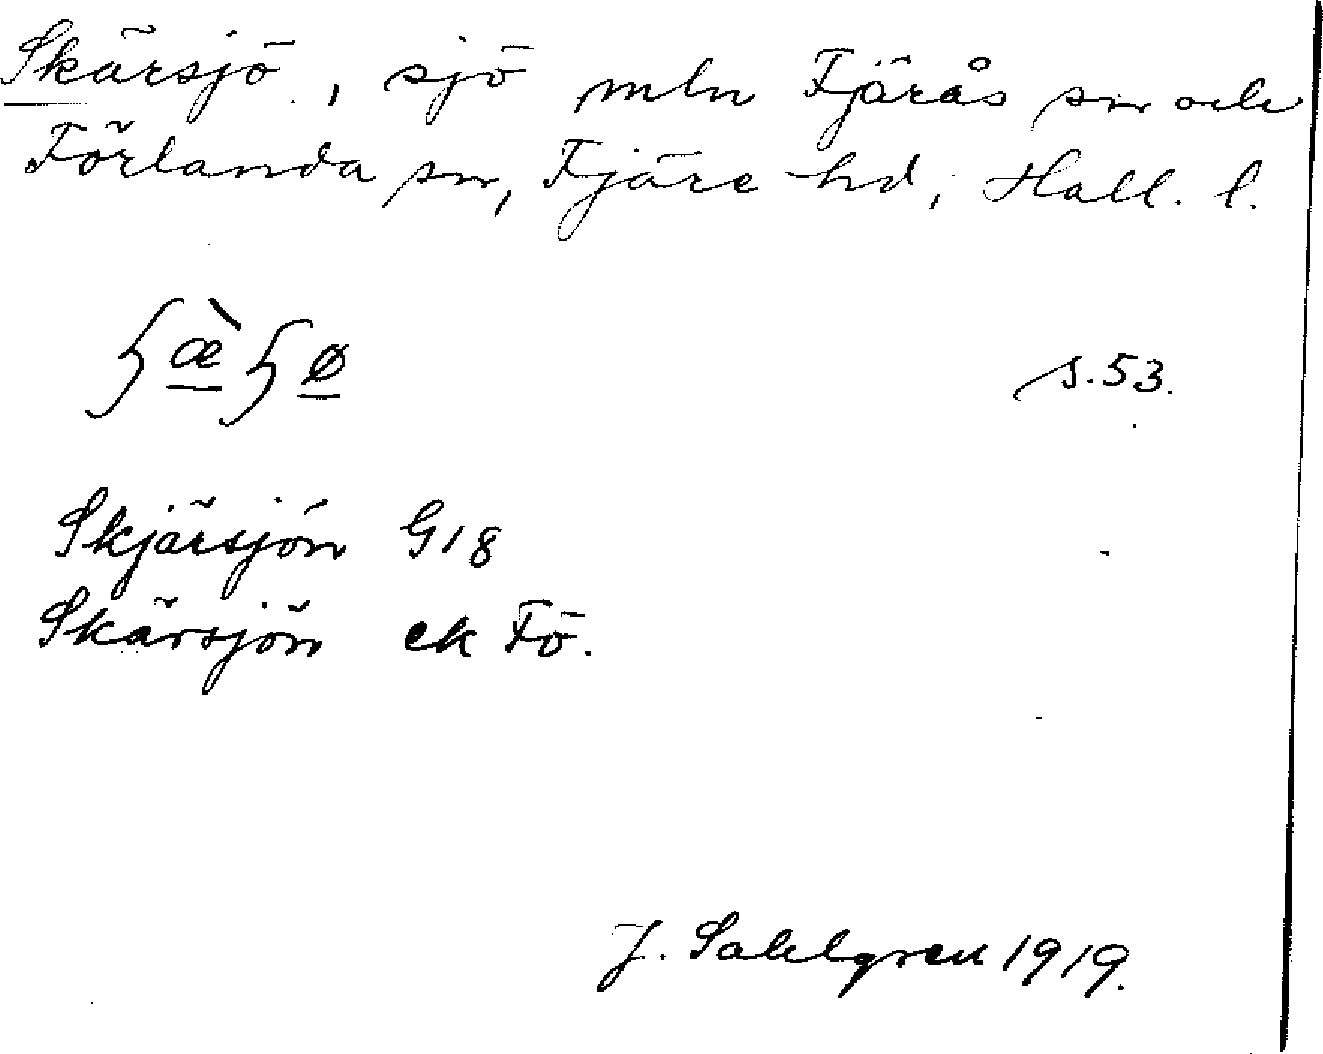 Skärsjö, sjö mln Fjärås sn och
Förlanda sn, Fjäre hd, Hall. l.
ʃæ̀ʃø s. 53.
Skjärsjön G18
Skärsjön ek Fö.
J. Sahlgren 1919.